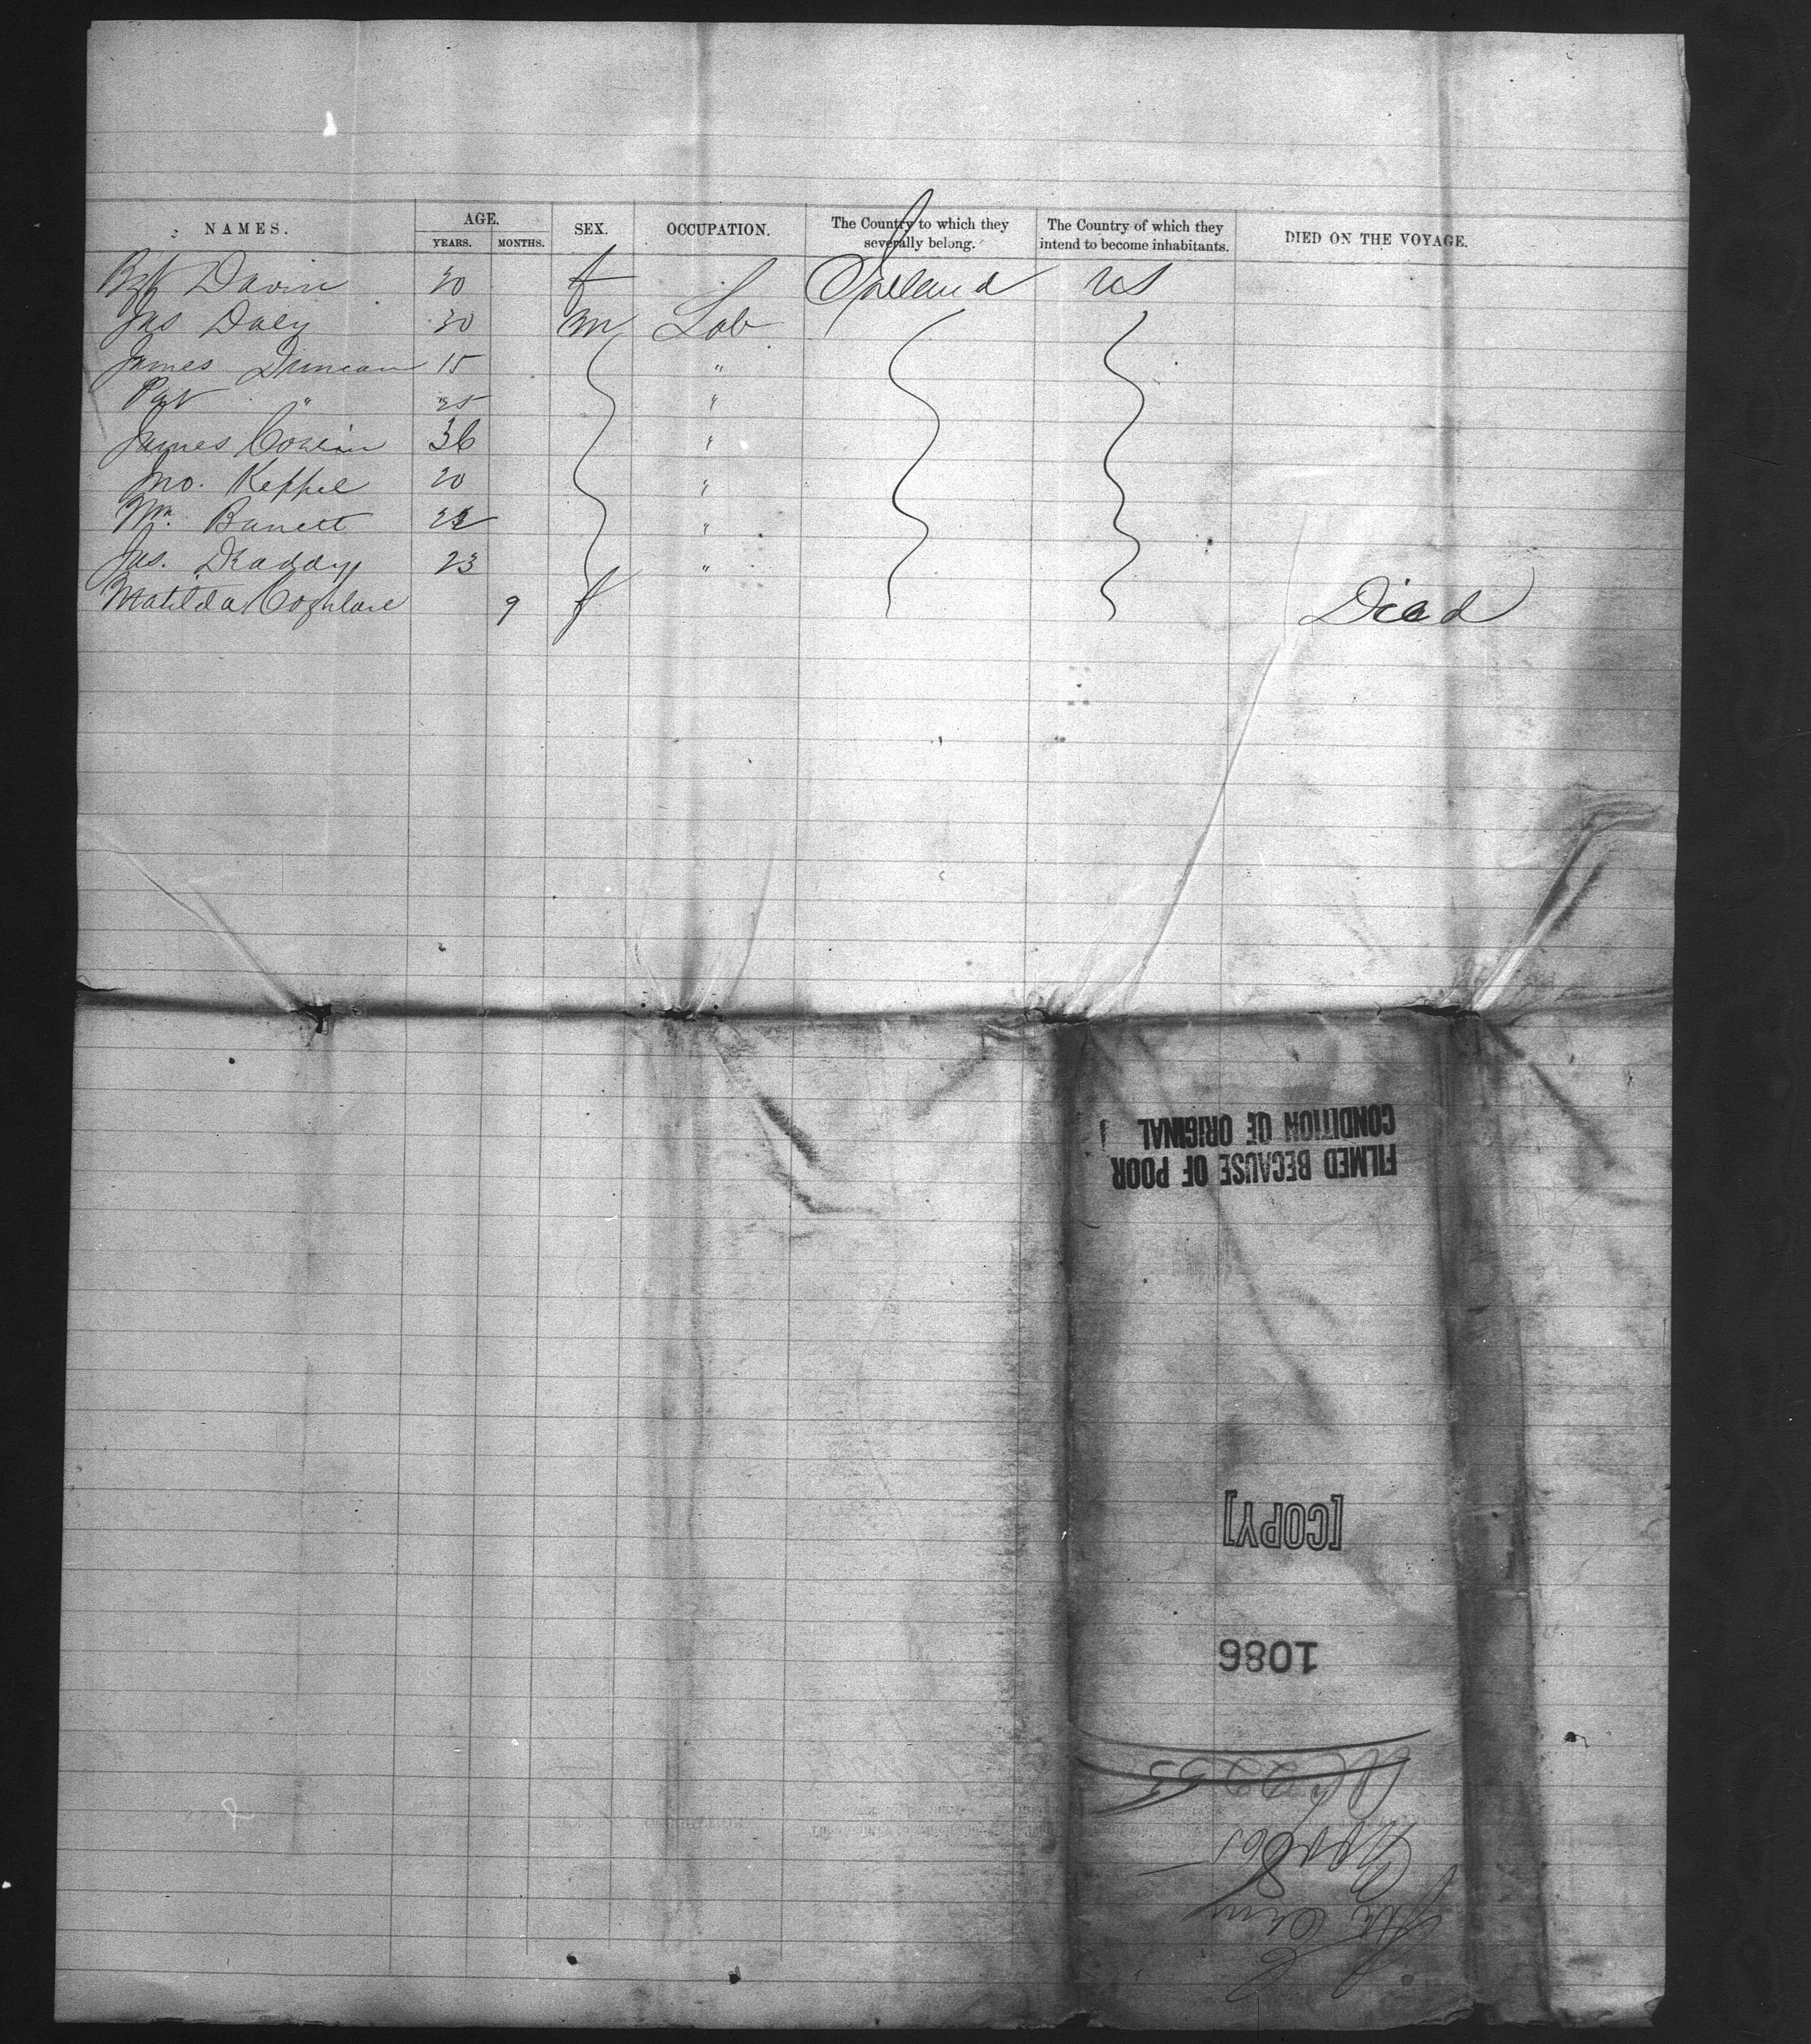 NAMES. AGE. SEX. OCCUPATION. The Country to which they severally belong. The Country of which they intend to become inhabitants. DIED ON THE VOYAGE.
YEARS. MONTHS.
Davin 30 f Ireland US
Jas Daly 30 m Lab
James Duncan 15 "
Pat " 25 "
James 36 "
Jno. Keppel 20 "
Wm. Barrett 22 "
Jas. Draddy 23 "
Matilda Coghlane 9 f Died
FILMED BECAUSE OF POOR
CONDITION OF ORIGINAL
[COPY]
1086